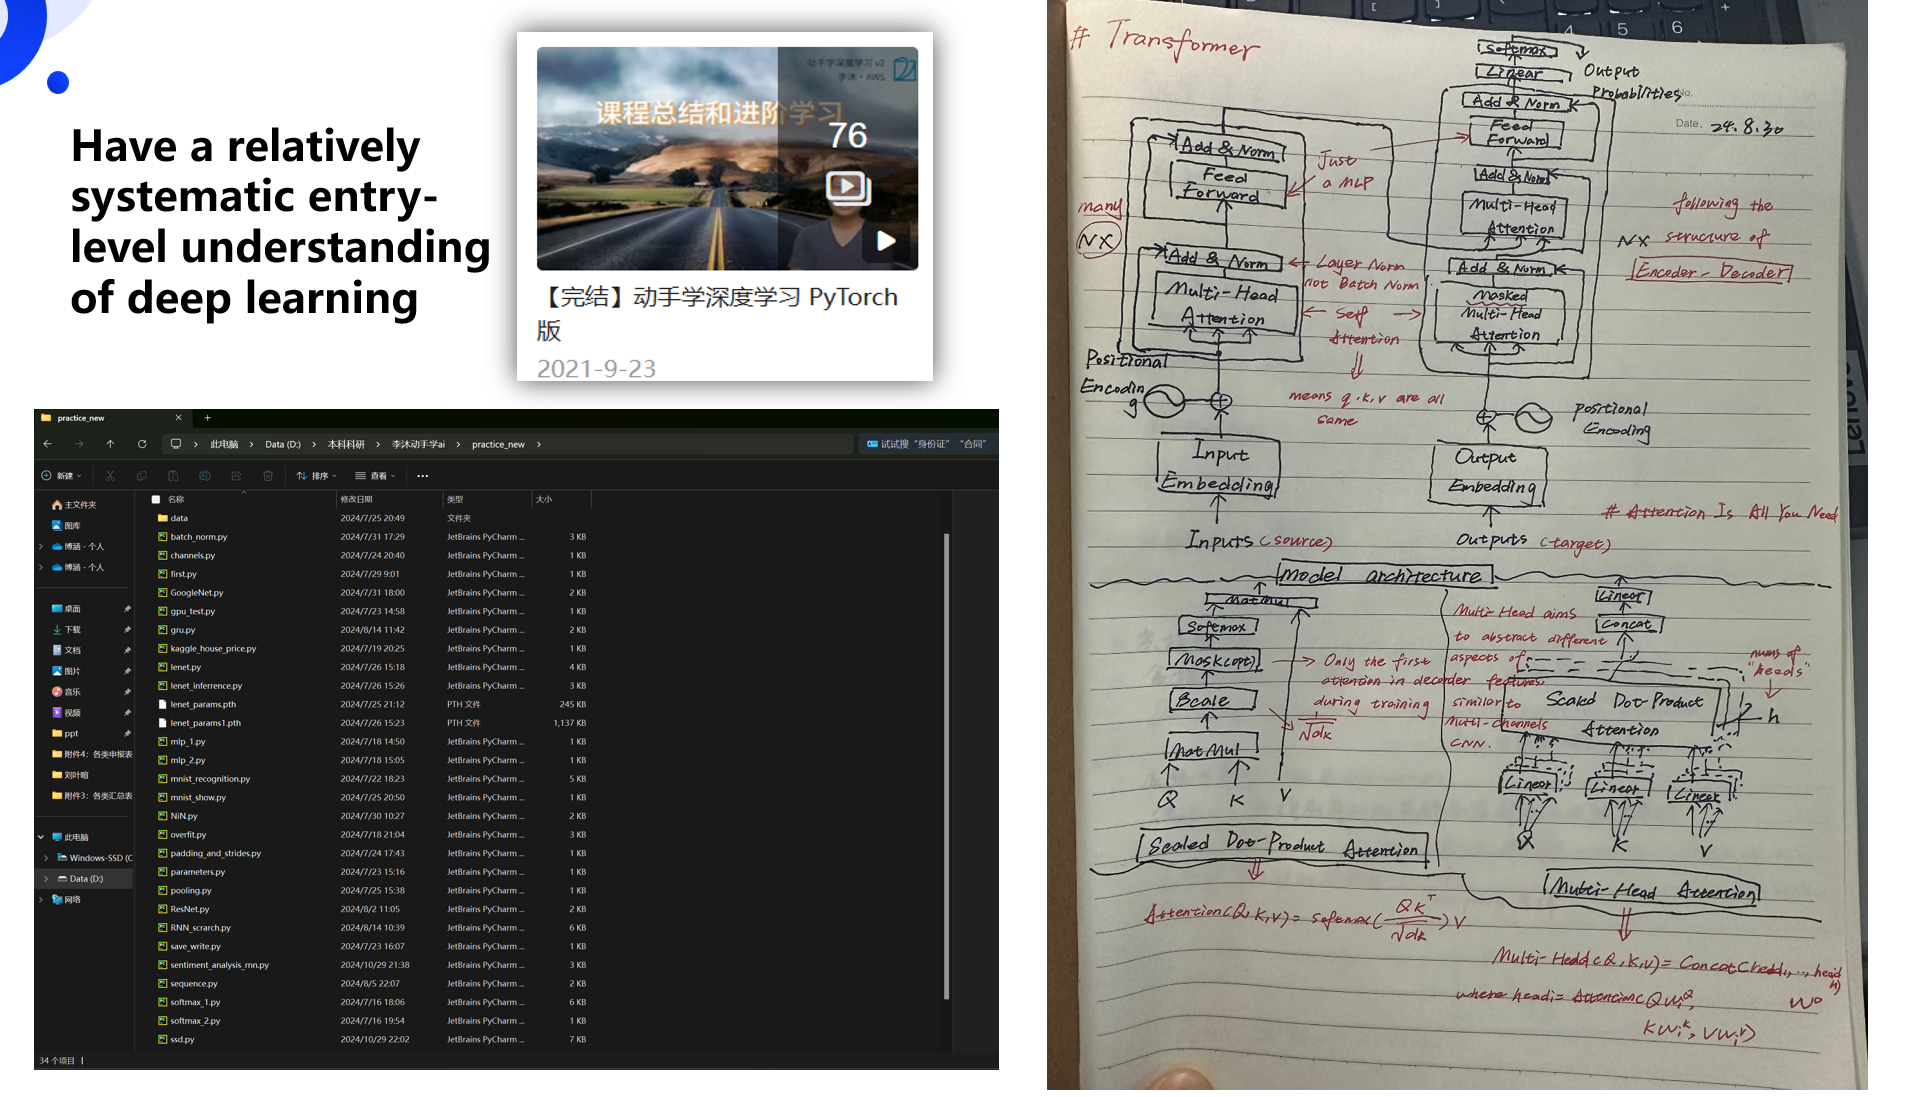 Have a relatively
systematic entry-
level understanding
of deep learning
动手学深度学习 v2
李沐 · AWS
课程总结和进阶学习
76
【完结】动手学深度学习 PyTorch
版
2021-9-23
practice_new
此电脑 > Data (D:) > 本科科研 > 李沐动手学ai > practice_new >
试试搜 "身份证" "合同"
新建
排序
查看
名称 修改日期 类型 大小
主文件夹
图库
博涵 - 个人
博涵 - 个人
桌面
下载
文档
图片
音乐
视频
ppt
附件4：各类申报表
刘叶暄
附件3：各类汇总表
此电脑
Windows-SSD (C
Data (D:)
网络
data 2024/7/25 20:49 文件夹
batch_norm.py 2024/7/31 17:29 JetBrains PyCharm ... 3 KB
channels.py 2024/7/24 20:40 JetBrains PyCharm ... 1 KB
first.py 2024/7/29 9:01 JetBrains PyCharm ... 1 KB
GoogleNet.py 2024/7/31 18:00 JetBrains PyCharm ... 2 KB
gpu_test.py 2024/7/23 14:58 JetBrains PyCharm ... 1 KB
gru.py 2024/8/14 11:42 JetBrains PyCharm ... 2 KB
kaggle_house_price.py 2024/7/19 20:25 JetBrains PyCharm ... 1 KB
lenet.py 2024/7/26 15:18 JetBrains PyCharm ... 4 KB
lenet_inferrence.py 2024/7/26 15:26 JetBrains PyCharm ... 3 KB
lenet_params.pth 2024/7/25 21:12 PTH 文件 245 KB
lenet_params1.pth 2024/7/26 15:23 PTH 文件 1,137 KB
mlp_1.py 2024/7/18 14:50 JetBrains PyCharm ... 1 KB
mlp_2.py 2024/7/18 15:05 JetBrains PyCharm ... 1 KB
mnist_recognition.py 2024/7/22 18:23 JetBrains PyCharm ... 5 KB
mnist_show.py 2024/7/25 20:50 JetBrains PyCharm ... 1 KB
NiN.py 2024/7/30 10:27 JetBrains PyCharm ... 2 KB
overfit.py 2024/7/18 21:04 JetBrains PyCharm ... 3 KB
padding_and_strides.py 2024/7/24 17:43 JetBrains PyCharm ... 1 KB
parameters.py 2024/7/23 15:16 JetBrains PyCharm ... 1 KB
pooling.py 2024/7/25 15:38 JetBrains PyCharm ... 1 KB
ResNet.py 2024/8/2 11:05 JetBrains PyCharm ... 2 KB
RNN_scrarch.py 2024/8/14 10:39 JetBrains PyCharm ... 6 KB
save_write.py 2024/7/23 16:07 JetBrains PyCharm ... 1 KB
sentiment_analysis_rnn.py 2024/10/29 21:38 JetBrains PyCharm ... 3 KB
sequence.py 2024/8/5 22:07 JetBrains PyCharm ... 2 KB
softmax_1.py 2024/7/16 18:06 JetBrains PyCharm ... 6 KB
softmax_2.py 2024/7/16 19:54 JetBrains PyCharm ... 1 KB
ssd.py 2024/10/29 22:02 JetBrains PyCharm ... 7 KB
34 个项目
# Transformer
No.
Date. 24.8.30
Softmax
Linear
Output
Probabilities
Add & Norm
Feed
Forward
Add & Norm
Multi-Head
Attention
Add & Norm
Masked
Multi-Head
Attention
Add & Norm
Feed
Forward
Add & Norm
Multi-Head
Attention
many
NX
Just
a MLP
Layer Norm
not Batch Norm
Self
Attention
means q.k.v are all
same
NX
following the
structure of
Encoder-Decoder
Positional
Encoding
Positional
Encoding
Input
Embedding
Output
Embedding
# Attention Is All You Need
Inputs (source)
Outputs (target)
Model architecture
MatMul
Softmax
Mask(opt)
Scale
MatMul
Q K V
Only the first
attention in decorder
during training
1/√dk
Scaled Dot-Product Attention
Attention(Q,K,V)=softmax(QK^T/√dk)V
Multi-Head aims
to abstract different
aspects of
features,
similar to
Multi-channels
CNN.
Linear
Concat
nums of
"heeds"
Scaled Dot-Product
Attention
h
Linear Linear Linear
Q K V
Multi-Head Attention
Multi-Head(Q,K,V)=Concat(head1,...,headh)
W^O
where headi=Attention(QWi^Q,
KWi^K, VWi^V)
Lenovo
4 5 6